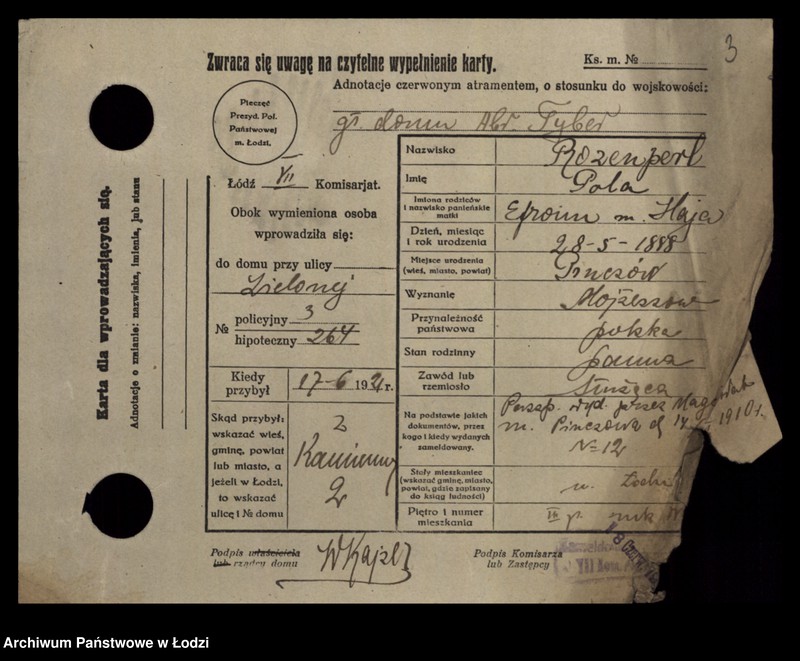 3
Zwraca się uwagę na czytelne wypełnienie karty.
Ks. m. №
Adnotacje czerwonym atramentem, o stosunku do wojskowości:
gł. domu Abr. Tyber
Pieczęć
Prezyd. Pol.
Państwowej
m. Łodzi.
Łódź VII Komisarjat.
Obok wymieniona osoba
wprowadziła się:
do domu przy ulicy
Zielonej
№ policyjny 3
hipoteczny 264
Kiedy
przybył
17-6 1921 r.
Skąd przybył:
wskazać wieś,
gminę, powiat
lub miasto, a
jeżeli w Łodzi,
to wskazać
ulicę i № domu
z
Kamiennej
2
Nazwisko
Rozenperl
Imię
Pola
Imiona rodziców
i nazwisko panieńskie
matki
Efroim m. Haja
Dzień, miesiąc
i rok urodzenia
28-5-1888
Miejsce urodzenia
(wieś, miasto, powiat)
Pinczów
Wyznanie
Mojżeszow
Przynależność
państwowa
polska
Stan rodzinny
panna
Zawód lub
rzemiosło
służąca
Na podstawie jakich
dokumentów, przez
kogo i kiedy wydanych
zameldowany.
Paszp. wyd. przez Magistrat
m. Pinczowa d. 14 1910 r.
№ 12
Stały mieszkaniec
(wskazać gminę, miasto,
powiat, gdzie zapisany
do ksiąg ludności)
m. Łodzi
Piętro i numer
mieszkania
III p.
Podpis właściciela
lub rządcy domu
Podpis Komisarza
lub Zastępcy
VII Kom.
Karta dla wprowadzających się.
Adnotacje o zmianie: nazwiska, imienia, lub stanu
Archiwum Państwowe w Łodzi